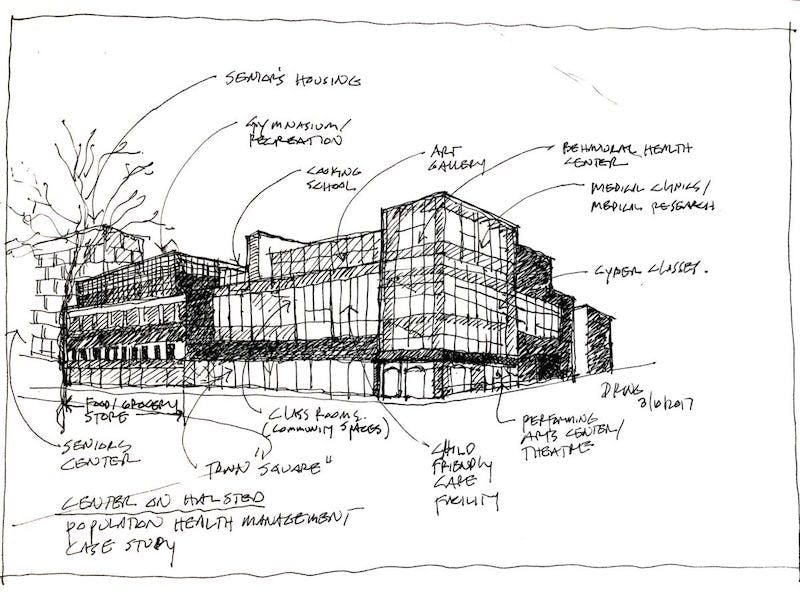 SENIOR'S HOUSING
GYMNASIUM/
RECREATION
COOKING
SCHOOL
ART
GALLERY
BEHAVIORAL HEALTH
CENTER
MEDICAL CLINICS/
MEDICAL RESEARCH
CYBER CLASSES.
FOOD/GROCERY
STORE
SENIORS
CENTER
TOWN "SQUARE"
CLASS ROOMS.
(COMMUNITY SPACES)
CHILD
FRIENDLY
CARE
FACILITY
PERFORMING
ARTS CENTER/
THEATRE
3/6/2017
CENTER ON HALSTED
POPULATION HEALTH MANAGEMENT
CASE STUDY